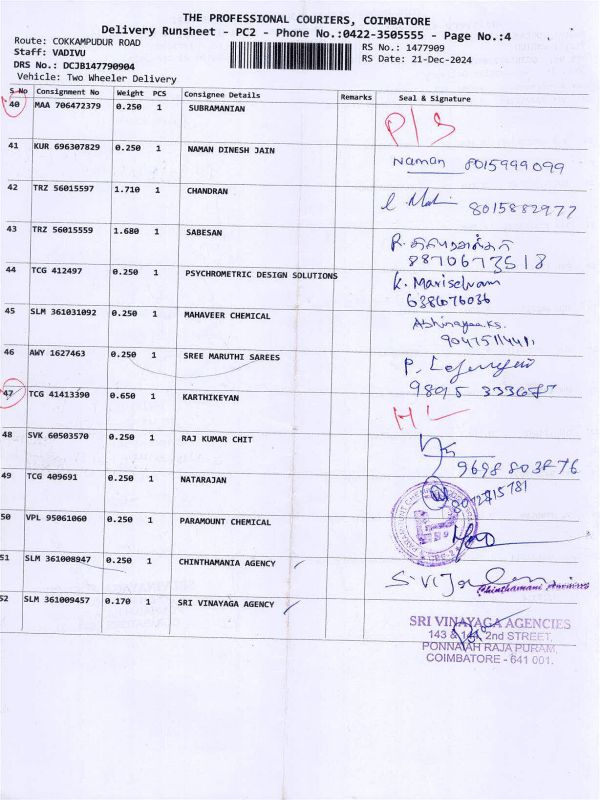 THE PROFESSIONAL COURIERS, COIMBATORE
Delivery Runsheet - PC2 - Phone No.:0422-3505555 - Page No.:4
Route: COKKAMPUDUR ROAD RS No.: 1477909
Staff: VADIVU RS Date: 21-Dec-2024
DRS No.: DCJB147790904
Vehicle: Two Wheeler Delivery
S No Consignment No Weight PCS Consignee Details Remarks Seal & Signature
40 MAA 706472379 0.250 1 SUBRAMANIAN P/S
41 KUR 696307829 0.250 1 NAMAN DINESH JAIN Naman 8015999099
42 TRZ 56015597 1.710 1 CHANDRAN 8015882977
43 TRZ 56015559 1.680 1 SABESAN
8870673518
44 TCG 412497 0.250 1 PSYCHROMETRIC DESIGN SOLUTIONS K. Mariselvam
6381076036
45 SLM 361031092 0.250 1 MAHAVEER CHEMICAL Abhinayaa.K.S.
46 AWY 1627463 0.250 1 SREE MARUTHI SAREES P.
47 TCG 41413390 0.650 1 KARTHIKEYAN H L
48 SVK 60503570 0.250 1 RAJ KUMAR CHIT
9698803876
49 TCG 409691 0.250 1 NATARAJAN
50 VPL 95061060 0.250 1 PARAMOUNT CHEMICAL
51 SLM 361008947 0.250 1 CHINTHAMANIA AGENCY
52 SLM 361009457 0.170 1 SRI VINAYAGA AGENCY
SRI VINAYAGA AGENCIES
2nd STREET,
PONNAIAH RAJA PURAM,
COIMBATORE - 641 001.